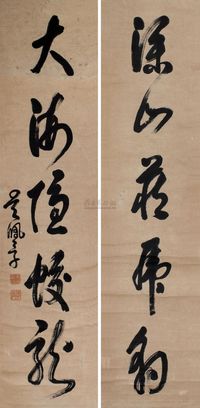 深山藏虎豹
大海隐蛟龙
吴佩孚